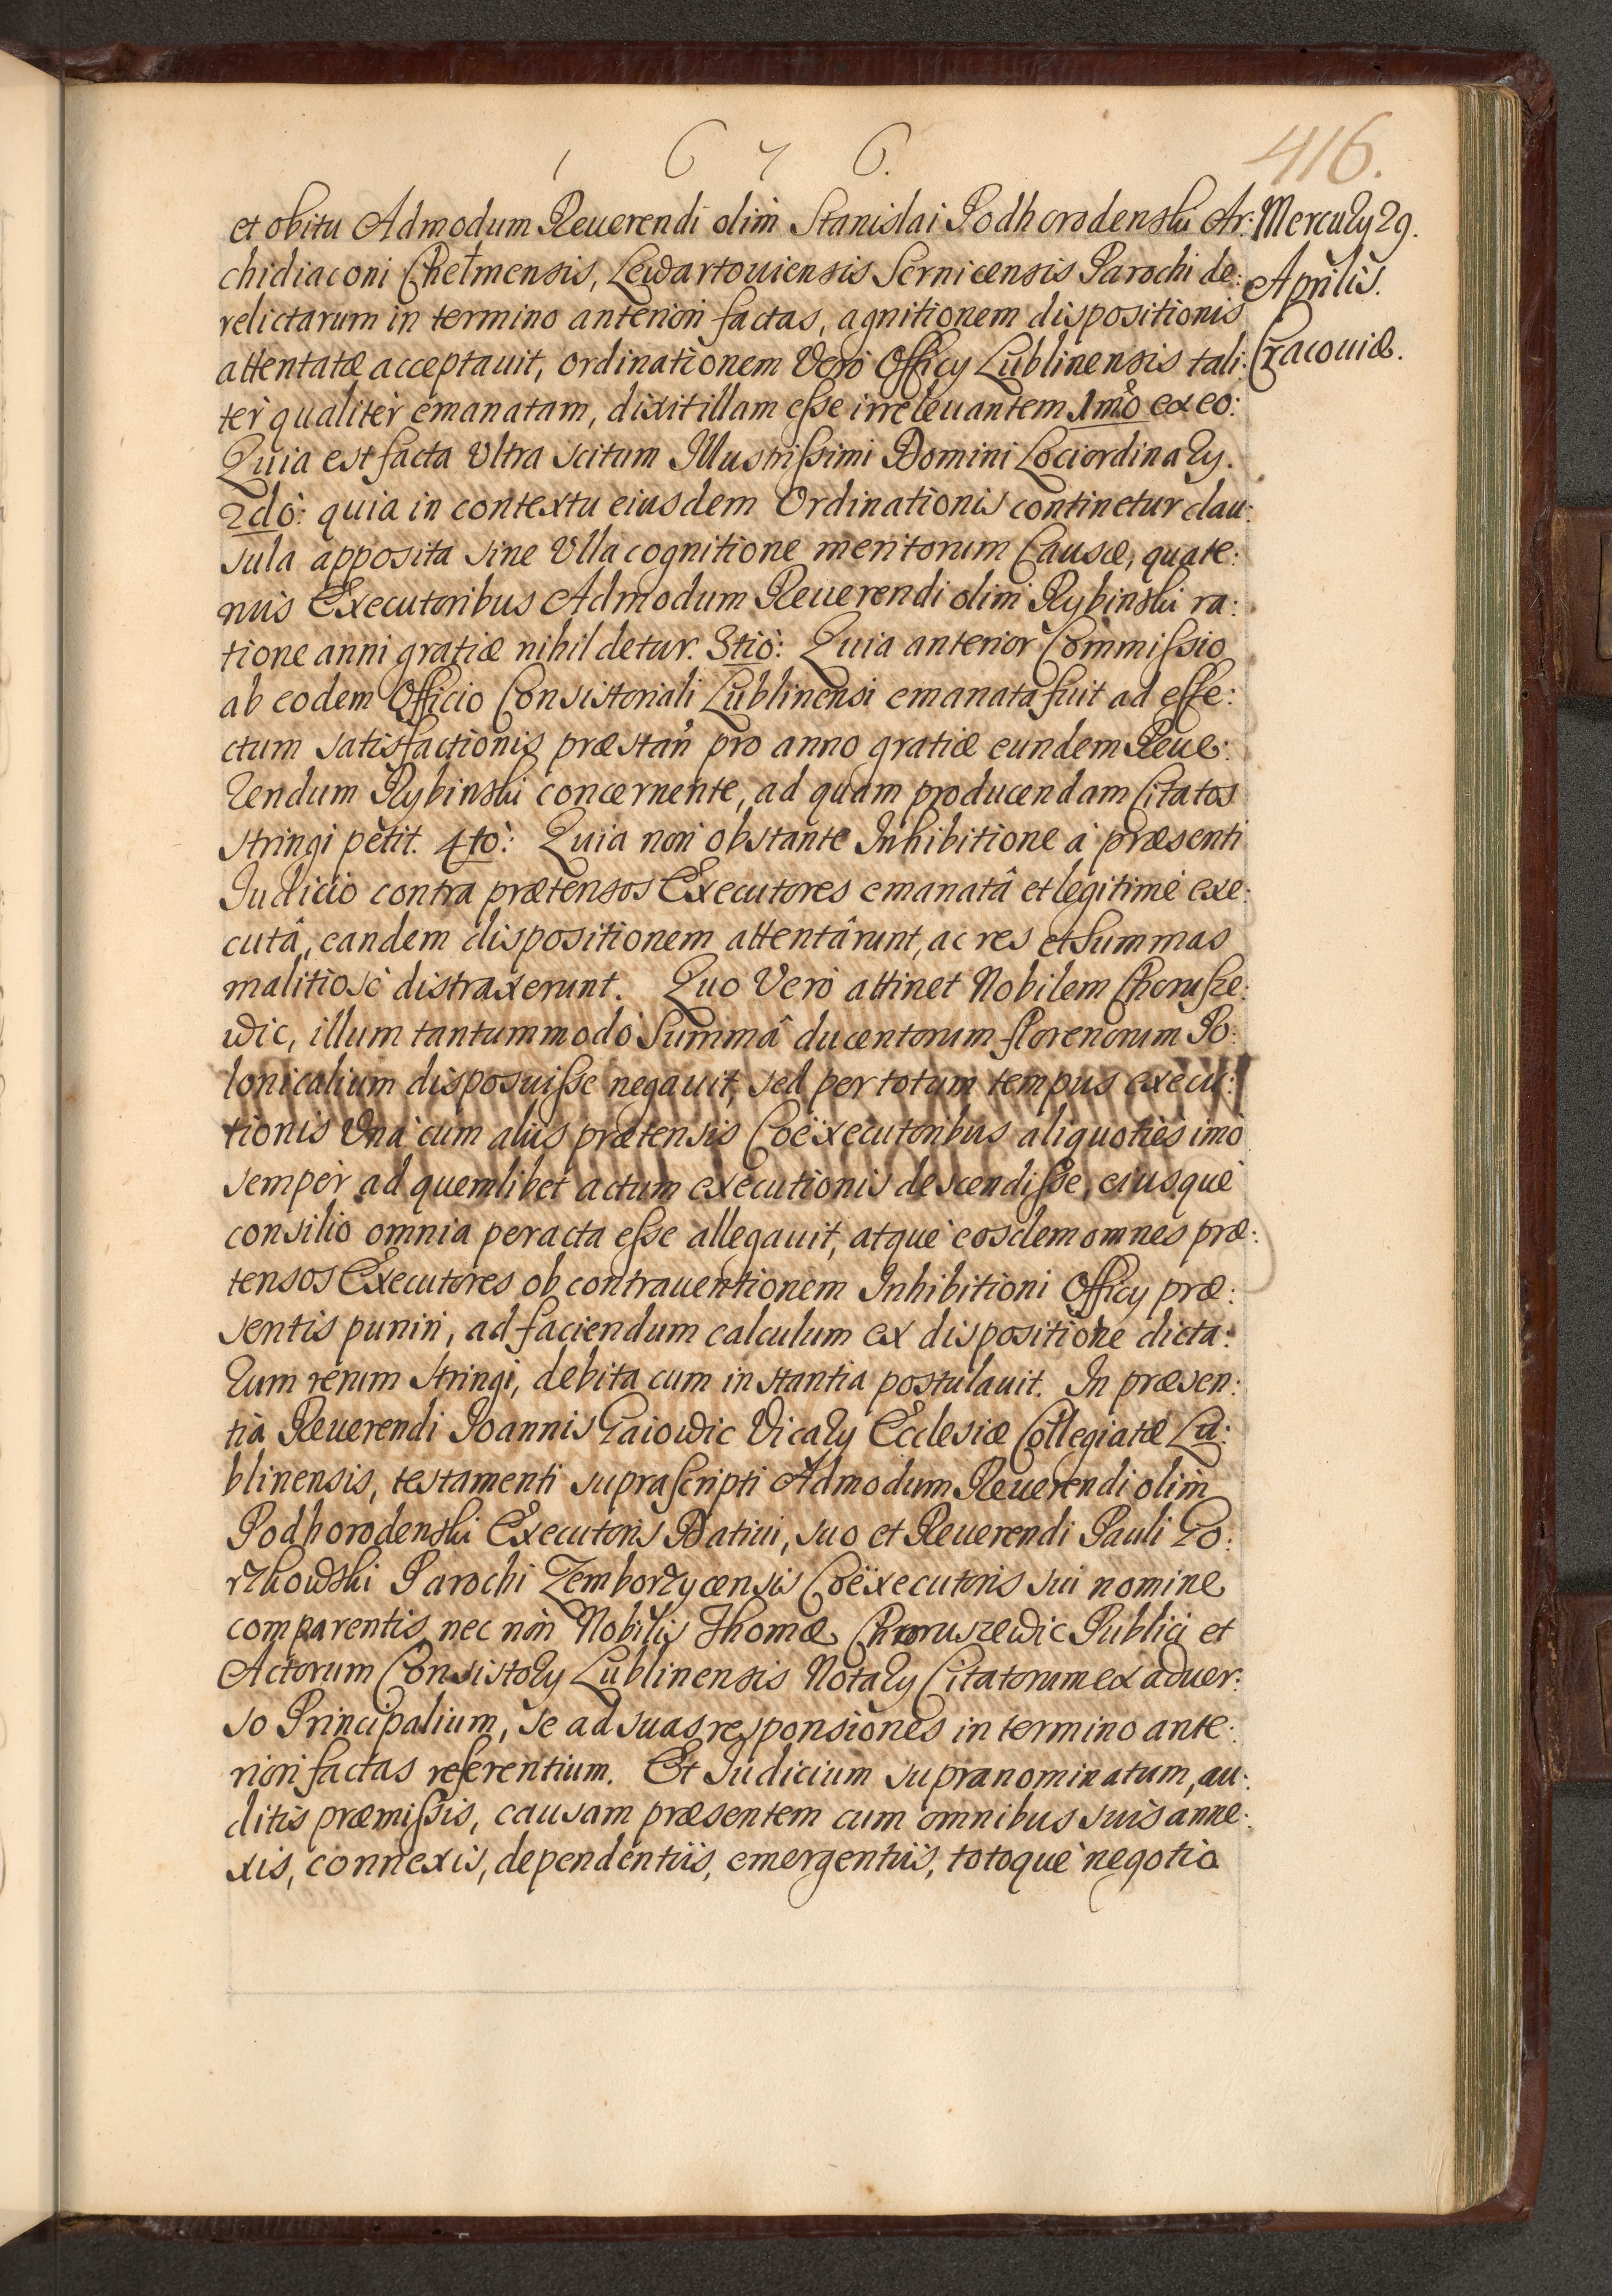 1 6 7 6.
416.
et obitu Admodum Reuerendi olim Stanislai Podhorodenski Ar:
chidiaconi Chełmensis, Lewartouiensis Sernicensis Parochi de:
relictarum in termino anteriori factas, agnitionem dispositionis
attentatæ acceptauit, ordinationem Verò Officÿ Lublinensis tali:
tèr qualitèr emanatam, dixit illam eſse irreleuantem 1mò ex eo:
Quia est facta Ultra scitum Illustriſsimi Domini Lociordinarÿ.
2dò: quia in contextu eiusdem Ordinationis continetur clau:
sula apposita sine Ulla cognitione meritorum Causæ, quate:
nus Executoribus Admodum Reuerendi olim Rybinski ra:
tione anni gratiæ nihil detur. 3tiò: Quia anterior Commiſsio
ab eodem Officio Consistoriali Lublinensi emanata fuit ad effe:
ctum satisfactionis præstan̄ pro anno gratiæ eundem Reue:
rendum Rybinski concernente, ad quam producendam Citatos
stringi petit. 4tò: Quia non obstante Inhibitione à præsenti
Iudicio contra prætensos Executores emanatâ et legitimè exe:
cutâ, eandem dispositionem attentârunt, ac res et Summas
malitiosè distraxerunt. Quo Verò attinet Nobilem Choruſze:
wic, illum tantummodò Summâ ducentorum florenorum Po:
lonicalium disposuiſse negauit, sed per totum tempus execu:
tionis Vnà cum aliis prætensis Coëxecutoribus aliquotiès imò
sempèr ad quemlibet actum executionis descendiſse, eiusquè
consilio omnia peracta eſse allegauit, atquè eosdem omnes præ:
tensos Executores ob contrauentionem Inhibitioni Officÿ præ:
sentis puniri, ad faciendum calculum ex dispositione dicta:
rum rerum stringi, debita cum instantia postulauit. In præsen:
tia Reuerendi Ioannis Gaiowic Vicarÿ Ecclesiæ Collegiatæ Lu:
blinensis, testamenti supraſcripti Admodum Reuerendi olim
Podhorodenski Executoris Datiui, suo et Reuerendi Pauli Go:
rzkowski Parochi Zemborzycensis Coëxecutoris sui nomine
comparentis, nec non Nobilis Thomæ Choruszewic Publici et
Actorum Consistorÿ Lublinensis Notarÿ Citatorum ex aduer:
so Principalium, se ad suas responsiones in termino ante:
riori factas referentium. Et Iudicium supranominatum, au:
ditis præmiſsis, causam præsentem cum omnibus suis anne:
xis, connexis, dependentiis, emergentiis, totoquè negotio
Mercurÿ 29.
Aprilis.
Cracouiæ.